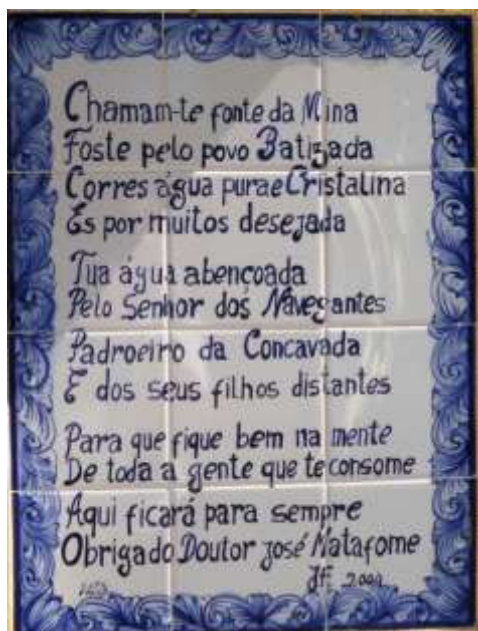 Chamam-te fonte da Mina
Foste pelo povo Batizada
Corres água pura e Cristalina
És por muitos desejada
Tua água abencoada
Pelo Senhor dos Navegantes
Padroeiro da Concavada
E dos seus filhos distantes
Para que fique bem na mente
De toda a gente que te consome
Aqui ficará para sempre
Obrigado Doutor José Matafome